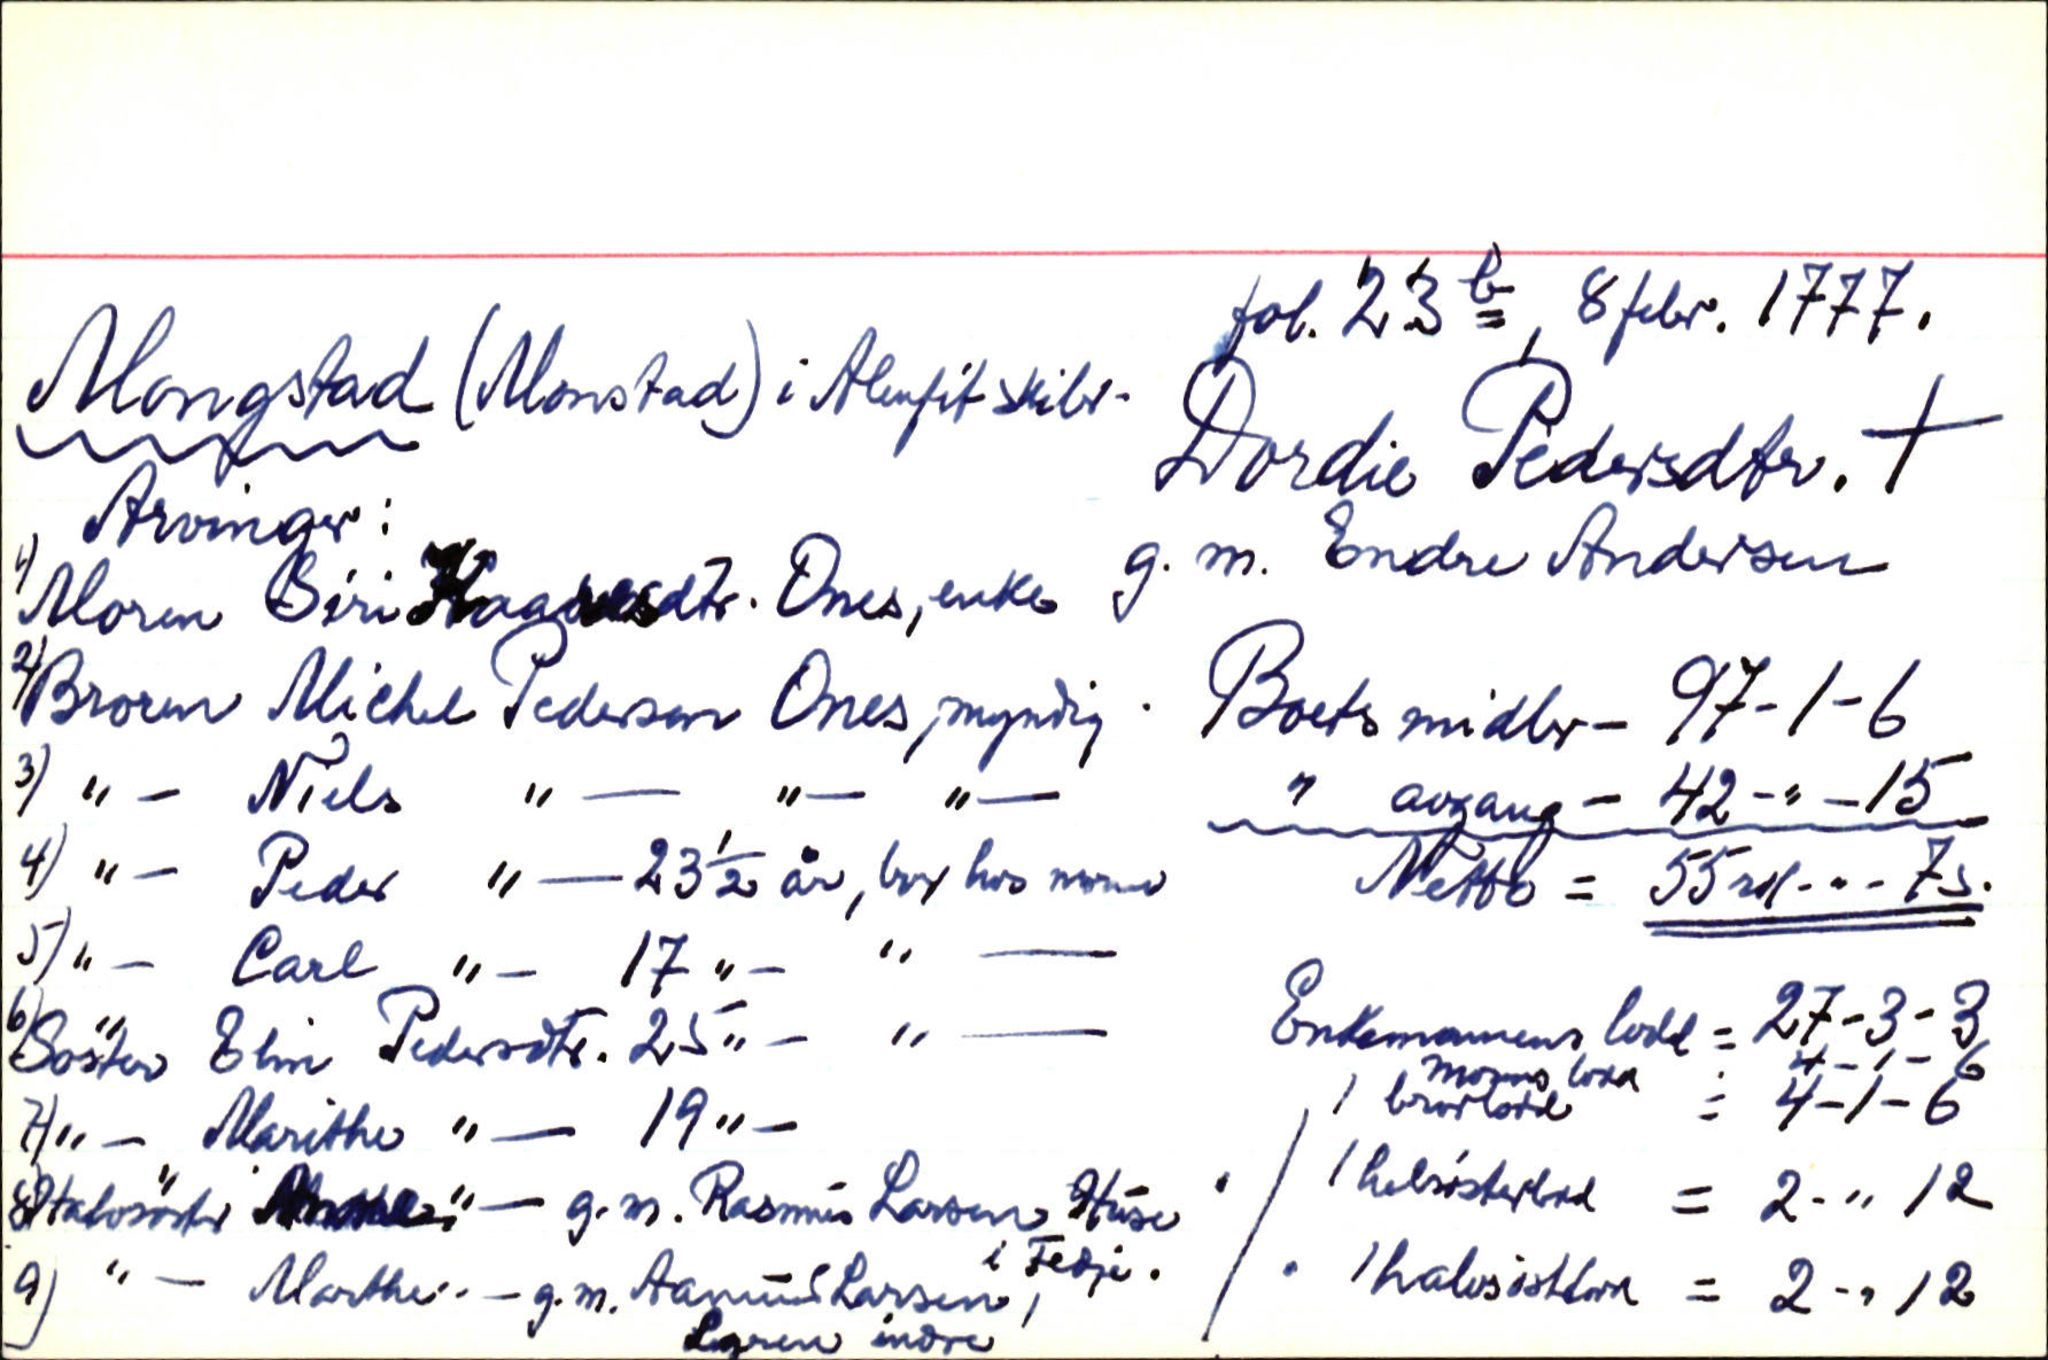 fol. 23 b, 8 febr. 1777.
Mongstad (Monstad) i Alenfit skibr.
Dordie Pedersdtr. †
g. m. Endre Andersen
Arvinger:
1) Moren Siri dtr. Ones, enke
2) Broren Michel Pedersen Ones, myndig.
3) " — Niels " — " — " —
4) " — Peder " — 23 1/2 år, bor hos moren
5) " — Carl " — 17 " — " —
6) Söster Elin Pedersdtr. 25 " — " —
7) " — Marithe " — 19 " —
8) Halvsöster " — g. m. Rasmus Larsen Huse i Fedje.
9) " — Marthe " — g. m. Larsen,
indre
Boets midler — 97-1-6
" avgang — 42-"-15
Netto = 55 rdl-"-7s.
Enkemannens lodd = 27-3-3
morens lodd : 4-1-6
1 brorlodd = 4-1-6
1 helsösterlod = 2-" 12
1 halvsöstlodd = 2-" 12